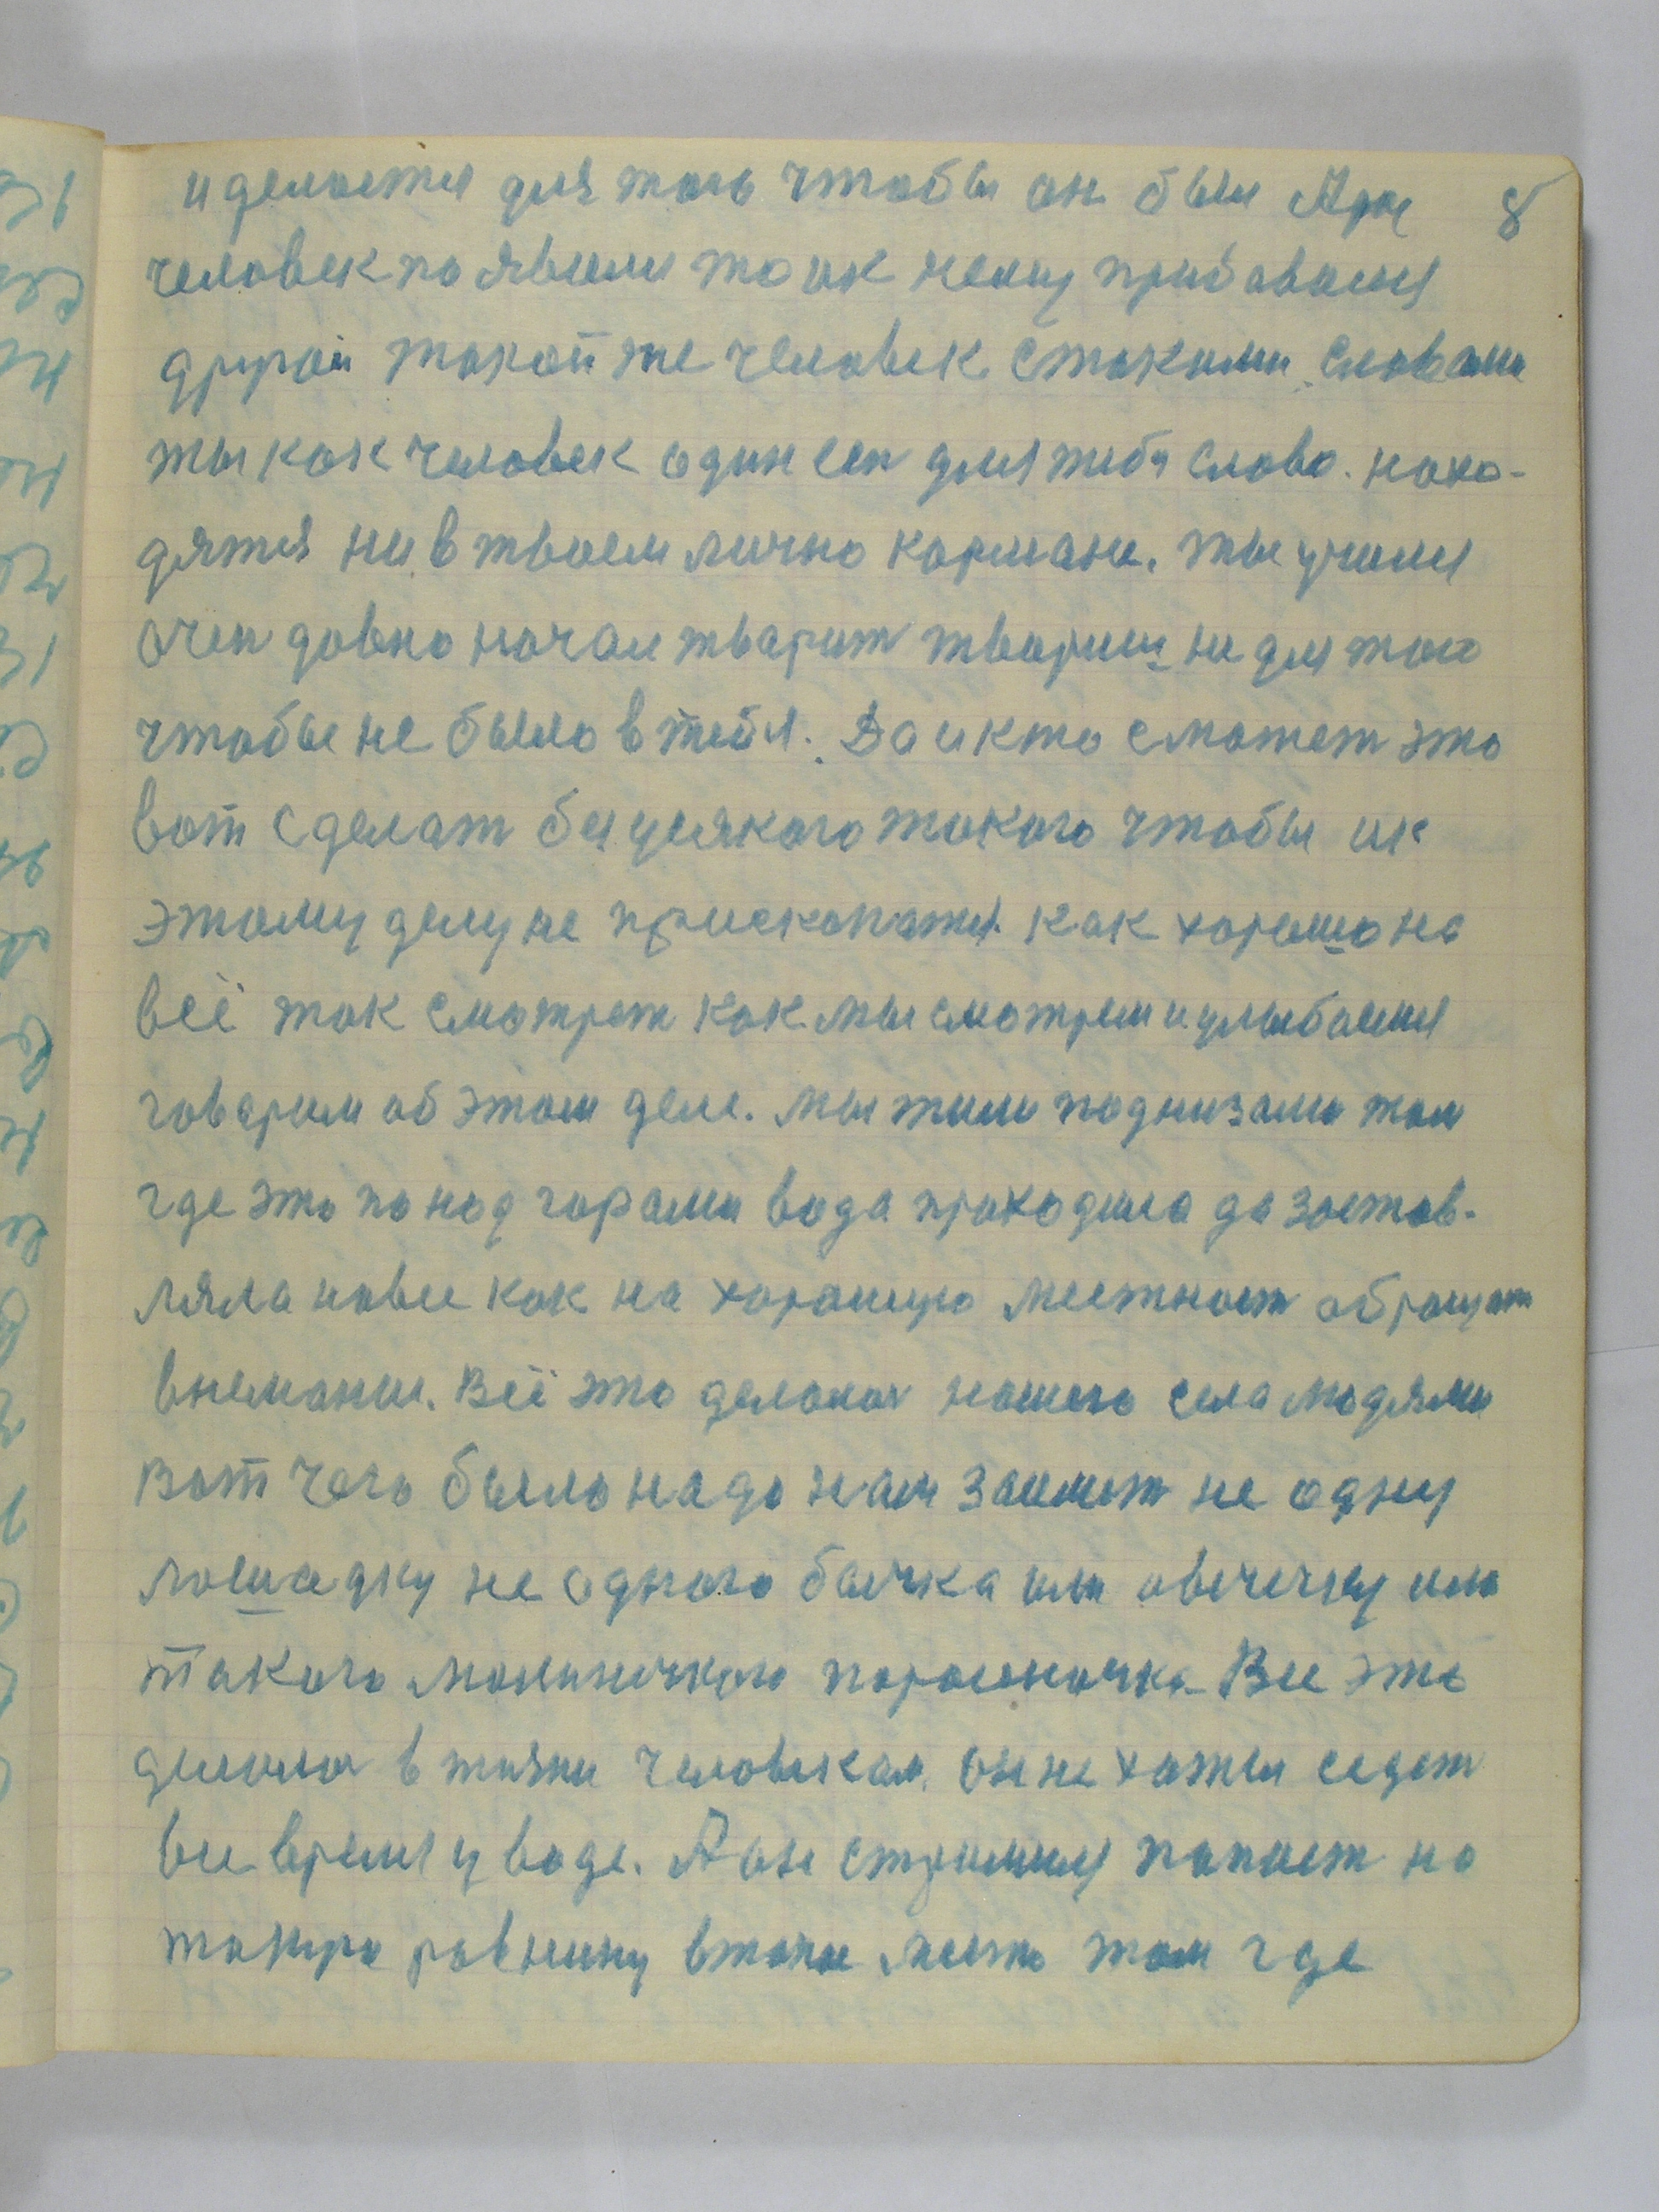 и делается для того чтобы он был А раз 8
человек по явился то и к нему прибавился
другой такой же человек стакими словами
ты как человек один сеп для тебя слова. нахо-
дятся не в твоем лично кармане. ты учился
очен давно начал тварит твориш не для того
чтобы не было в тебя. Да и кто сможет это
вот сделат без усякого такого чтобы ик
этому делу не прископатся. как хорошо на
всё так смотрет как мы смотрем и улыбаемся
говорим об этом деле. мы жили под низами там
где это по над горами вода проходила да застав-
ляла навсе как на хорошую местност обращат
внемание. Всё это делалос нашего села людями
вот чего было надо нам заимет не одну
лошадку не одного бычка или овечечку или
такого малинечкого поросночка Все это
делалос в жизни человекам. он не хотел седет
все время у воде. А он стримился попаст на
такую равнину в такое место там где